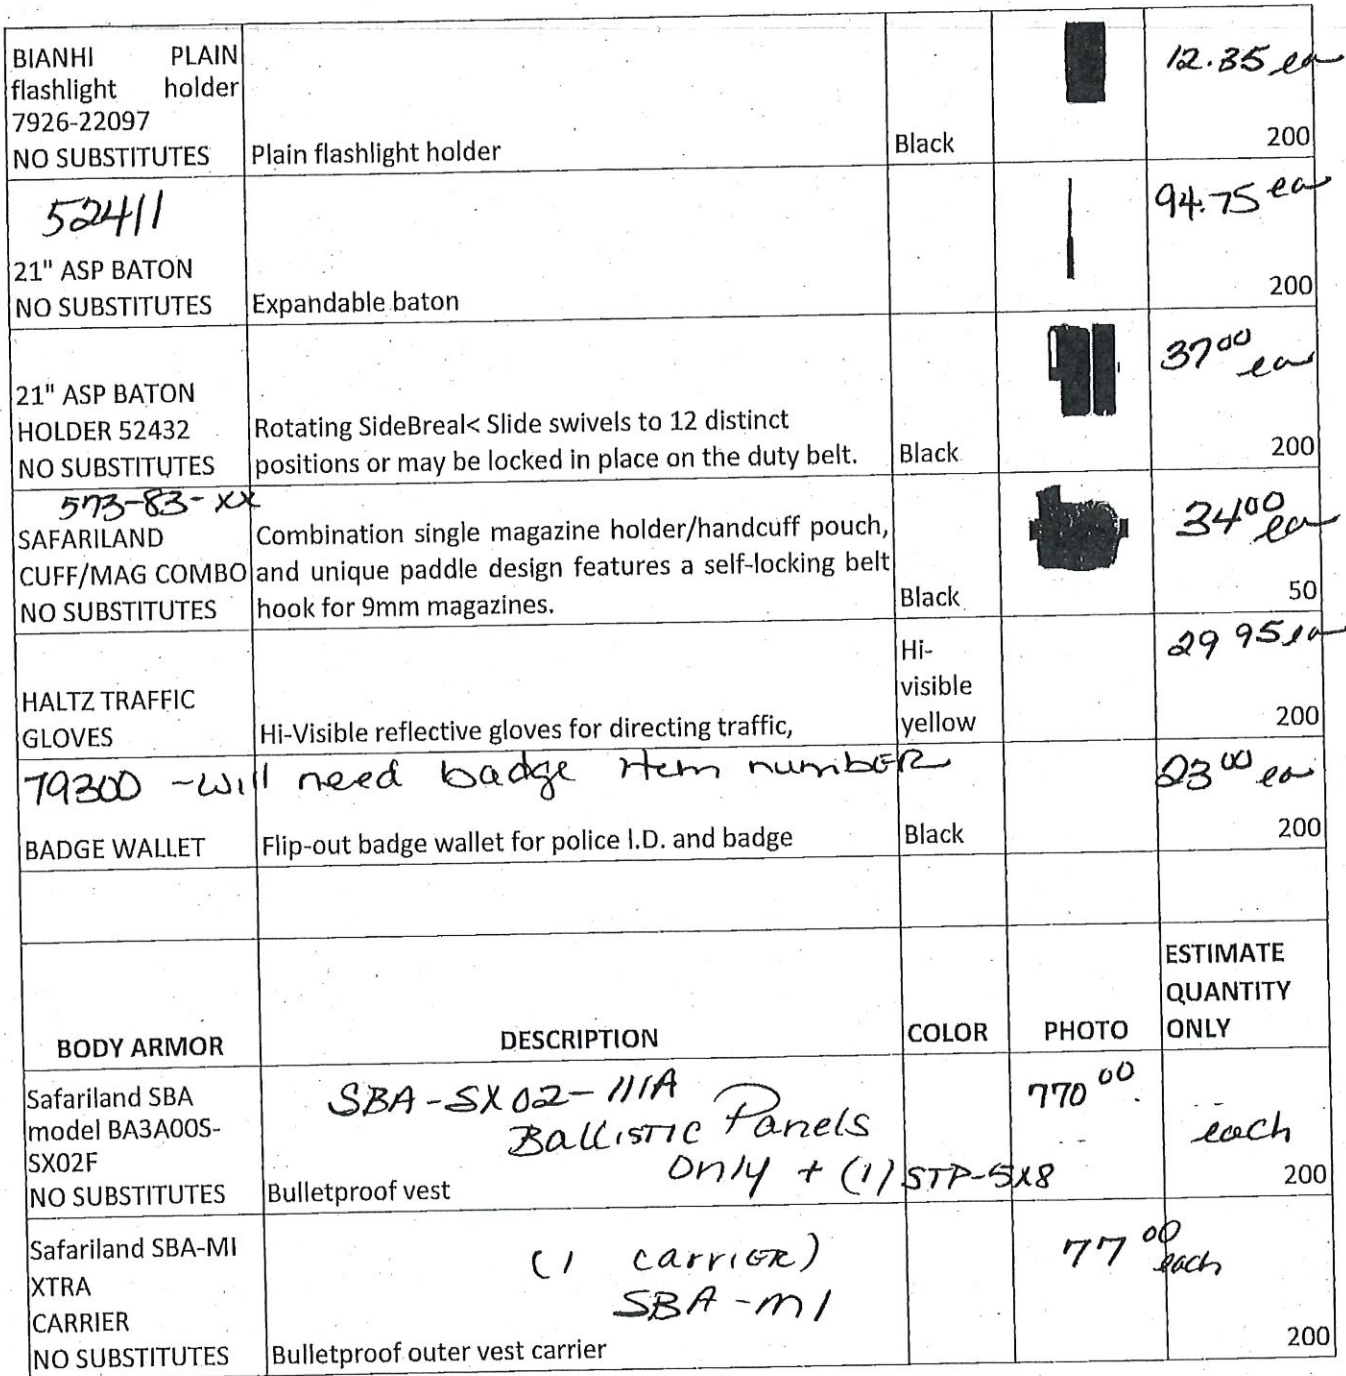 BIANHI PLAIN
flashlight holder
7926-22097
NO SUBSTITUTES
Plain flashlight holder
Black
12.35 ea
200
52411
21" ASP BATON
NO SUBSTITUTES
Expandable baton
94.75 ea
200
21" ASP BATON
HOLDER 52432
NO SUBSTITUTES
Rotating SideBreal< Slide swivels to 12 distinct
positions or may be locked in place on the duty belt.
Black
37 00 ea
200
573-83-XX
SAFARILAND
CUFF/MAG COMBO
NO SUBSTITUTES
Combination single magazine holder/handcuff pouch,
and unique paddle design features a self-locking belt
hook for 9mm magazines.
Black
34 00 ea
50
HALTZ TRAFFIC
GLOVES
Hi-Visible reflective gloves for directing traffic,
Hi-
visible
yellow
29 95 ea
200
79300 - will need badge item number
BADGE WALLET
Flip-out badge wallet for police I.D. and badge
Black
23 00 ea
200
BODY ARMOR
DESCRIPTION
COLOR
PHOTO
ESTIMATE
QUANTITY
ONLY
Safariland SBA
model BA3A00S-
SX02F
NO SUBSTITUTES
SBA-SX02-IIIA
Ballistic Panels
only + (1) STP-5X8
Bulletproof vest
770 00
each
200
Safariland SBA-MI
XTRA
CARRIER
NO SUBSTITUTES
(1 carrier)
SBA-M1
Bulletproof outer vest carrier
77 00 each
200